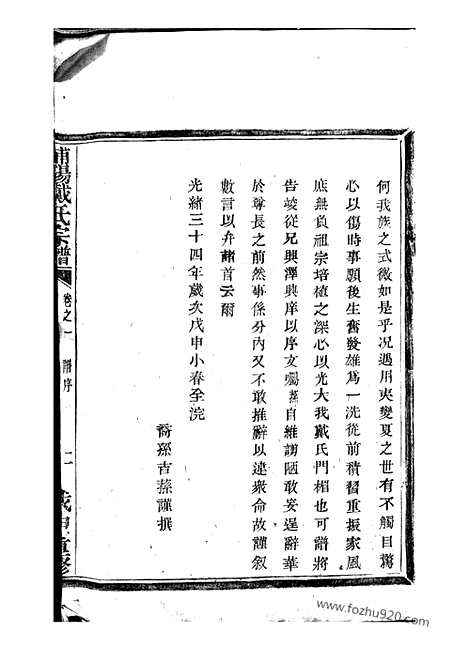 何我族之式微如是乎况遇用夷變夏之世有不觸目驚
心以傷時事願後生奮發雄爲一洗從前積習重振家風
庶無負祖宗培植之深心以光大我戴氏門楣也可譜將
告峻從兄興澤興庠以序文囑蓀自維謭陋敢妄逞辭華
於尊長之前然事係分內又不敢推辭以違衆命故謹叙
數言以弁諸首云爾
光緒三十四年歲次戊申小春全浣
裔孫吉蓀謹撰
浦陽戴氏宗譜
卷之一
譜序
二
戊申重修
www.fozhu920.com